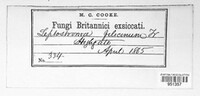 M. C. COOKE.
Fungi Britannici exsiccati.
Leptostroma filicinum Fr
Highgate
No. 334. April 1865